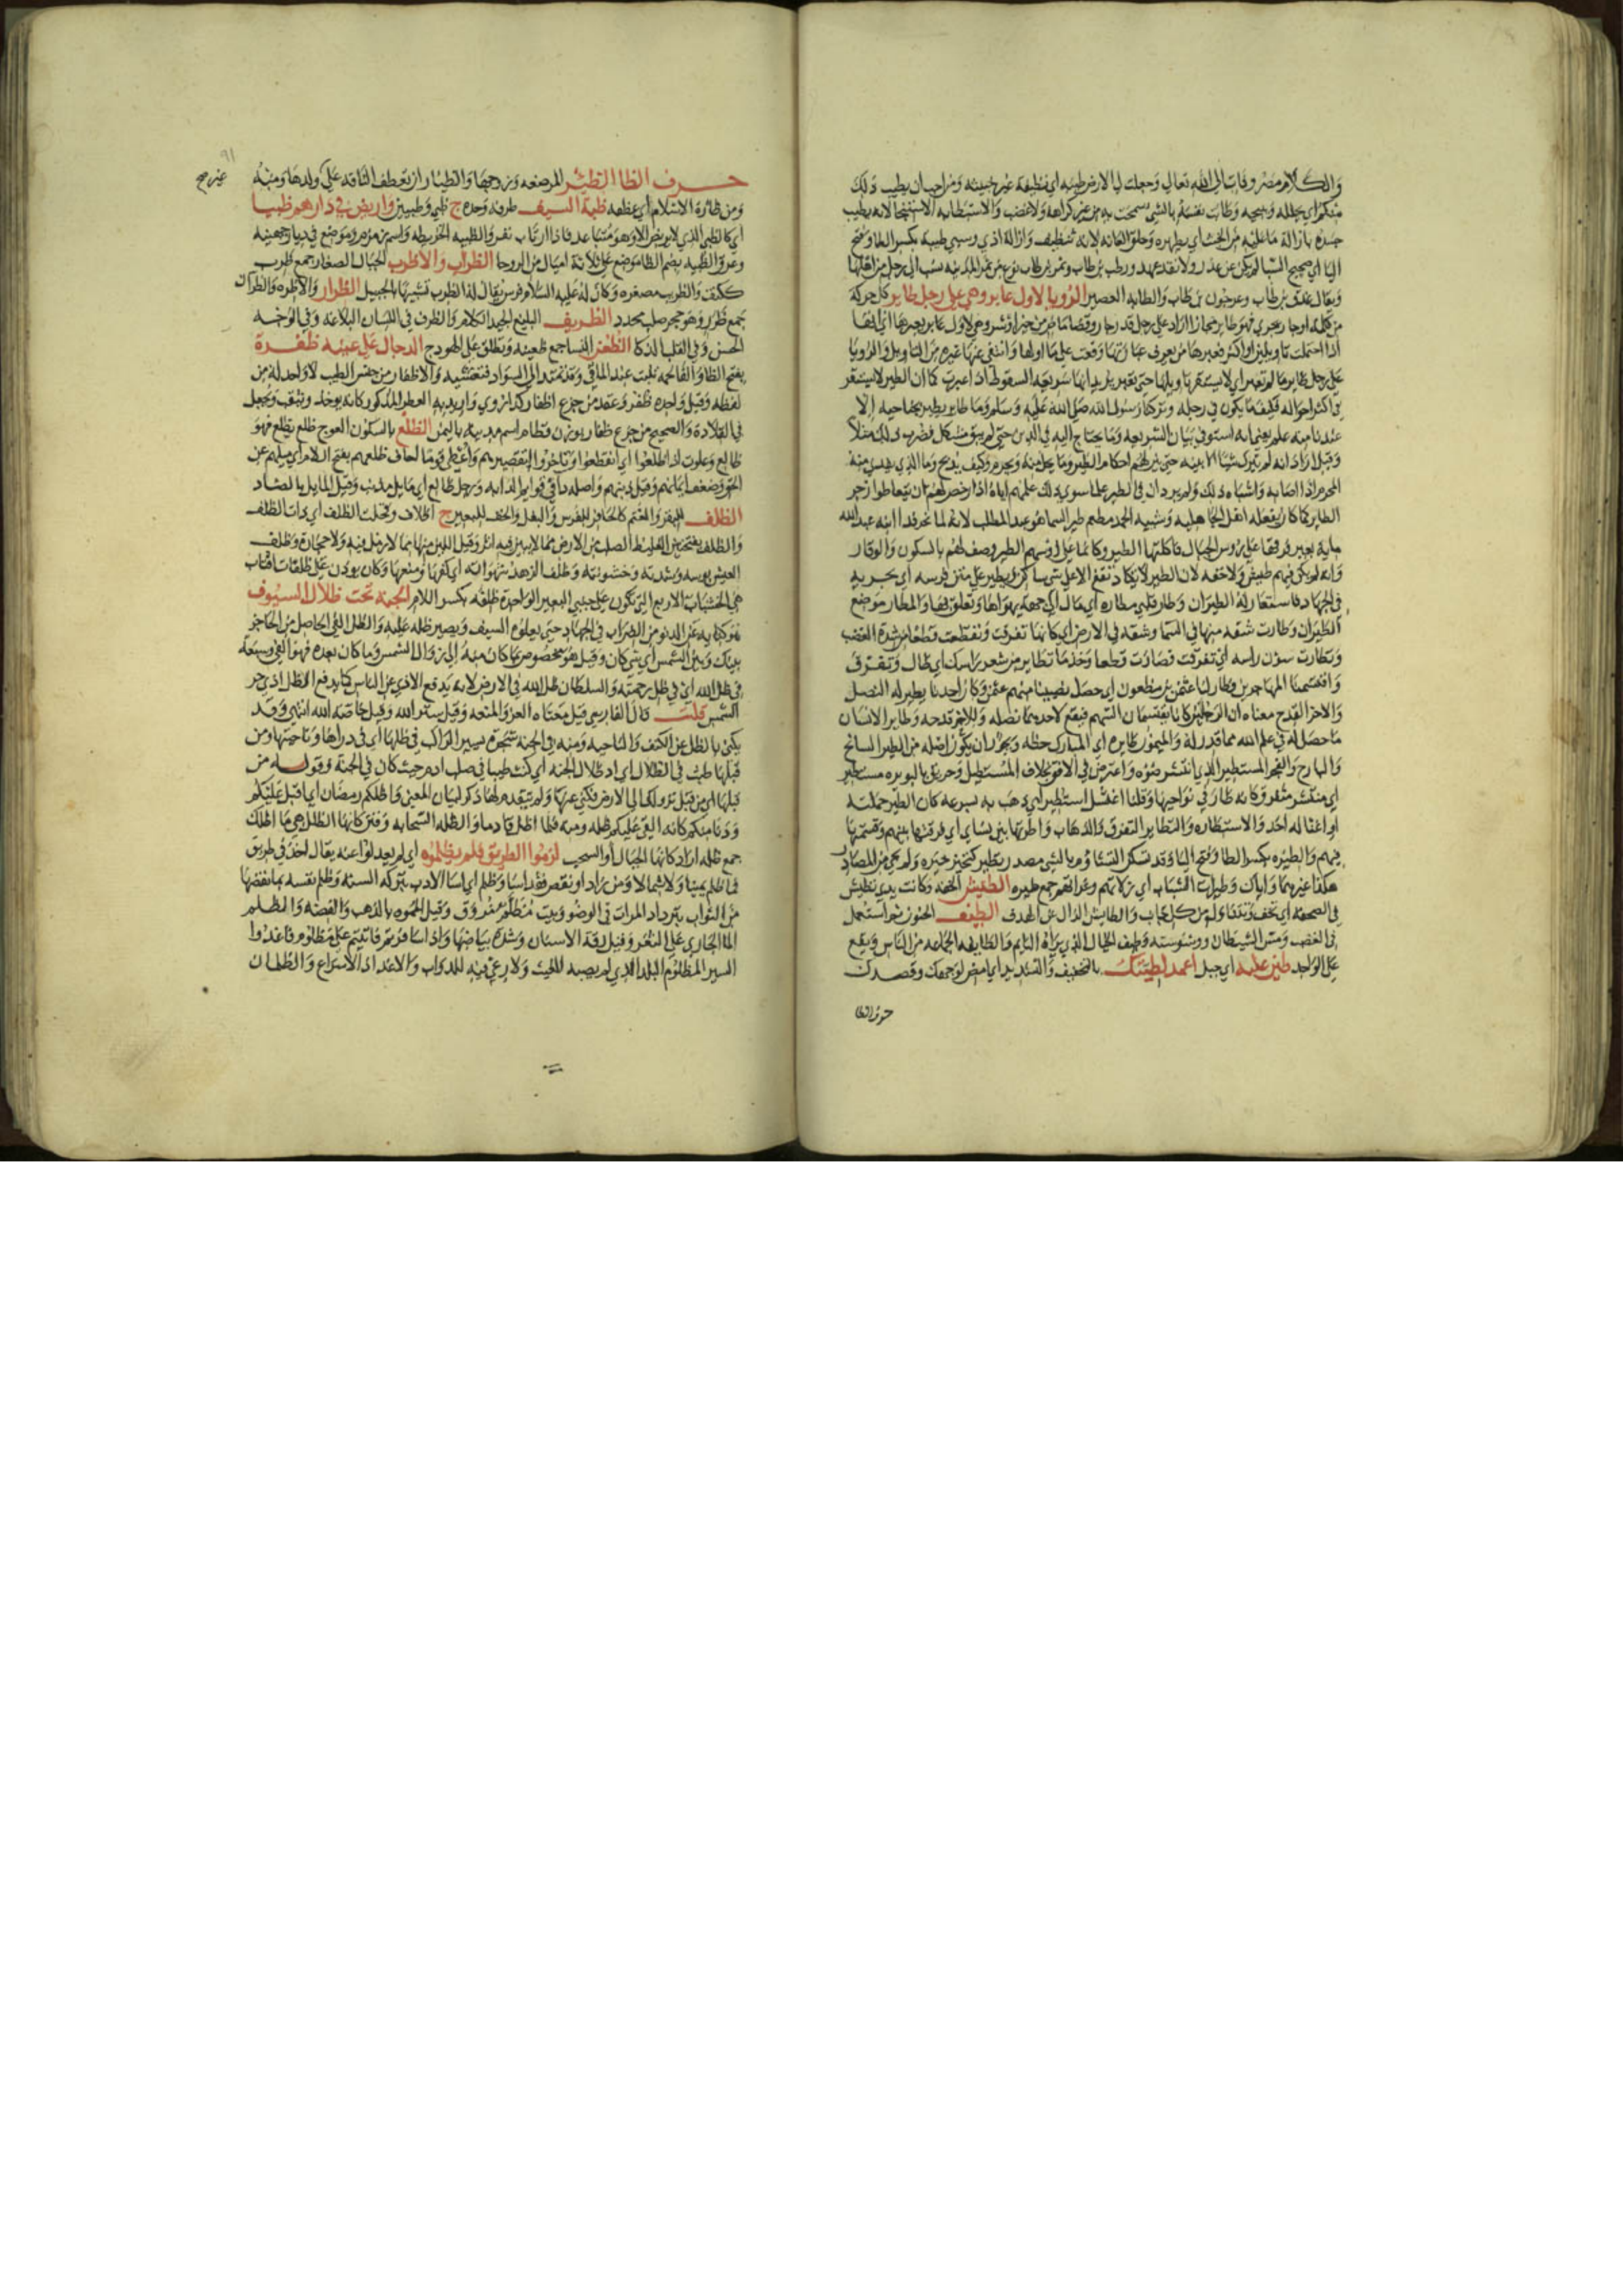 والكلام مضر وفات الى الله تعالى وجعلت لي الارض طيبة اي نظيفة غير خبيثة ومن احب ان يطيب ذلك
منكم اي يحلله ويبيحه وطابت نفسه بالشي سمحت به من غير كراهة ولا غضب والاستطابة الاستنجا لانه يطيب
جسده بازالة ما عليه من الخبث اي يطهره وحلق العانة لانه تنظيف وازالة اذى وسبي طيبة بكسر الطا وفتح
اليا اي صحيح السبا لم يكن عن غدر ولا نقض عهد ورطب بن طاب وتمر بن طاب نوع من تمر المدينة نسب الى رجل من اهلها
ويقال عذق بن طاب وعرجون بن طاب والطابة العصير الرويا لاول عابر وهي على رجل طاير كل حركة
من كلمة او جار يجري فهو طاير مجازا اراد على رجل قدر جار وقضا ماض من خير او شر وهي لاول عابر يعبرها اي انها
اذا احتملت تاويلين او اكثر فعبرها من يعرف عبارتها وقعت على ما اولها وانتفى عنها غيره من التاويل والرويا
على رجل طاير ما لم تعبر اي لا يستقر تاويلها حتى تعبر يريد انها سريعة السقوط اذا عبرت كما ان الطير لا يستقر
في اكثر احواله فكيف ما يكون في رجله وتركنا رسول الله صلى الله عليه وسلم وما طاير يطير بجناحيه الا
عندنا منه علم يعني انه استوفى بيان الشريعة وما يحتاج اليه في الدين حتى لم يبق مشكل فضرب ذلك مثلا
وقيل اراد انه لم يترك شيئا الا بينه حتى بين لهم احكام الطير وما يحل منه ويحرم وكيف يذبح وما الذي يفدى منه
المحرم اذا اصابه واشباه ذلك ولم يرد ان في الطير علما سوى ذلك علمهم اياه اذ رخص لهم ان يتعاطوا زجر
الطاير كما كان يفعله اهل الجاهلية وشيبة الحمد مطعم طير السما هو عبد المطلب لانه لما نحر فدا ابنه عبد الله
ماية بعير فرقها على روس الجبال فاكلتها الطير وكانما على روسهم الطير وصف لهم بالسكون والوقار
وانه لم يكن فيهم طيش ولا خفة لان الطير لا تكاد تقع الا على شي ساكن ويطير على متن فرسه اي يجريه
في الجهاد فاستعار له الطيران وطار قلبي مطاره اي مال الى جهة يهواها وتعلق بها والمطار موضع
الطيران وطارت شقة منها في السما وشقة في الارض اي كانها تفرقت وتقطعت قطعا من شدة الغضب
وتطارت سؤن راسه اي تفرقت فصارت قطعا وخذ ما تطاير من شعر راسك اي طال وتفرق
واقتسمنا المهاجرين فطار لنا عثمن بن مظعون اي حصل نصيبنا منهم عثمن وكان احدنا يطير له النصل
والاخر القدح معناه ان الرجلين كانا يقتسمان السهم فيقع لاحدهما نصله وللاخر قدحه وطاير الانسان
ما حصل له في علم الله مما قدر له والميمون طايره اي المبارك حظه ويجوز ان يكون اصله من الطير السانح
والبارح والفجر المستطير الذي انتشر ضوه واعترض في الافق بخلاف المستطيل وحريق بالبويرة مستطير
اي منتشر متفرق كانه طار في نواحيها وقلنا اغتيل استطير اي ذهب به بسرعة كان الطير حملته
او اغتاله احد والاستطارة والتطاير التفرق والذهاب واطرتها بين نساي اي فرقتها بينهم وقسمتها
فيهم والطيرة بكسر الطا وفتح اليا وقد تسكن التشاؤم بالشي مصدر تطير كتخير خيرة ولم يجي من المصادر
هكذا غيرهما واياك وطيرات الشباب اي زلاتهم وغراتهم جمع طيرة الطيش الخفة وكانت يدي تطيش
في الصحفة اي تخف وتتناول من كل جانب والطايش الزال عن الهدف الطيف الجنون ثم استعمل
في الغضب ومس الشيطان ووسوسته وطيف الخيال الذي يراه النايم والطايفة الجماعة من الناس ويقع
على الواحد طين عليه اي جبل اعمد لطيتك بالتخفيف والتشديد اي امض لوجهك وقصدك
حرف الظا
٩١
حرف الظا الظئر المرضعة وزوجها والظيار ان تعطف الناقة على ولدها ومنه
ومن ظاره الاسلام اي عطفه ظبة السيف طرفه وحده ج ظبي وظبين واربض في دارهم ظبيا
اي كالظبي الذي لا يربض الا وهو متباعد فاذا ارتاب نفر والظبية الخريطة واسم زمزم وموضع في ديار جهينة
وعرق الظبية بضم الظا موضع على ثلاثة اميال من الروحا الظراب والاظرب الجبال الصغار جمع ظرب
ككتف والظرب مصغره وكان له عليه السلام فرس يقال له الظرب تشبيها بالجبيل الظرار والاظرة والظران
جمع ظرر وهو حجر صلب محدد الظريف البليغ الجيد الكلام والظرف في اللسان البلاغة وفي الوجه
الحسن وفي القلب الذكا الظعن النسا جمع ظعينة وتطلق على الهودج الدجال على عينه ظفرة
بفتح الظا والفا لحمة تنبت عند الماقي وقد تمتد الى السواد فتغشيه والاظفار من جنس الطيب لا واحد له من
لفظه وقيل واحده ظفر وعقد من جزع اظفار كذا روي واريد به العطر المذكور كانه يوخذ ويثقب ويجعل
في القلادة والصحيح من جزع ظفار بوزن قطام اسم مدينة باليمن الظلع بالسكون العرج ظلع يظلع فهو
ظالع وعلوت اذ اظلعوا اي انقطعوا وتاخروا لتقصيرهم واعطي قوما اخاف ظلعهم بفتح اللام اي ميلهم عن
الحق وضعف ايمانهم وقيل ذنبهم واصله دا في قوايم الدابة ورجل ظالع اي مايل مذنب وقيل المايل بالضاد
الظلف للبقر والغنم كالحافر للفرس والبغل والخف للبعير ج اظلاف وقحلت الظلف اي ذات الظلف
والظلف بفتحتين الغليظ الصلب من الارض مما لا يبين فيه اثر وقيل اللين منها مما لا رمل فيه ولا حجارة وظلف
العيش بوسه وشدته وخشونته وظلف الزهد شهواته اي كفها ومنعها وكان يوذن على ظلفات اقتاب
هي الخشبات الاربع التي تكون على جنبي البعير الواحدة ظلفة بكسر اللام الجنة تحت ظلال السيوف
هو كناية عن الدنو من الضراب في الجهاد حتى يعلوه السيف ويصير ظله عليه والظل الفي الحاصل من الحاجز
بينك وبين الشمس اي شي كان وقيل هو مخصوص بما كان منه الى زوال الشمس وما كان بعده فهو الفي وسبعة
في ظل الله اي في ظل رحمته والسلطان ظل الله في الارض لانه يدفع الاذى عن الناس كما يدفع الظل اذى حر
الشمس قلت قال الفارسي قيل معناه العز والمنعة وقيل ستر الله وقيل خاصة الله انتهى وقد
يكنى بالظل عن الكنف والناحية ومنه في الجنة شجرة يسير الراكب في ظلها اي في ذراها وناحيتها ومن
قبلها طبت في الظلال اي اراد ظلال الجنة اي كنت طيبا في صلب ادم حيث كان في الجنة وقوله من
قبلها اي من قبل نزولك الى الارض فكنى عنها ولم يتقدم لها ذكر لبيان المعنى واظلكم رمضان اي اقبل عليكم
ودنا منكم كانه القى عليكم ظله ومنه فلما اظل قادما والظلة السحابة وفتن كانها الظلل هي ما اظلك
جمع ظلة اراد كانها الجبال او السحب لزموا الطريق فلم يظلموه اي لم يعدلوا عنه يقال اخذ في طريق
فما ظلم يمينا ولا شمالا ومن زاد او نقص فقد اسا وظلم اي اسا الادب بتركه السنة وظلم نفسه بما نقصها
من الثواب بترداد المرات في الوضو وبيت مظلم مزوق وقيل المموه بالذهب والفضة والظلم
الما الجاري على الثغر وقيل رقة الاسنان وشدة بياضها واذا سافرتم فاتيتم على مظلوم فاغذوا
السير المظلوم البلد الذي لم يصبه الغيث ولا رعي فيه للدواب والاغذاذ الاسراع والظلمان